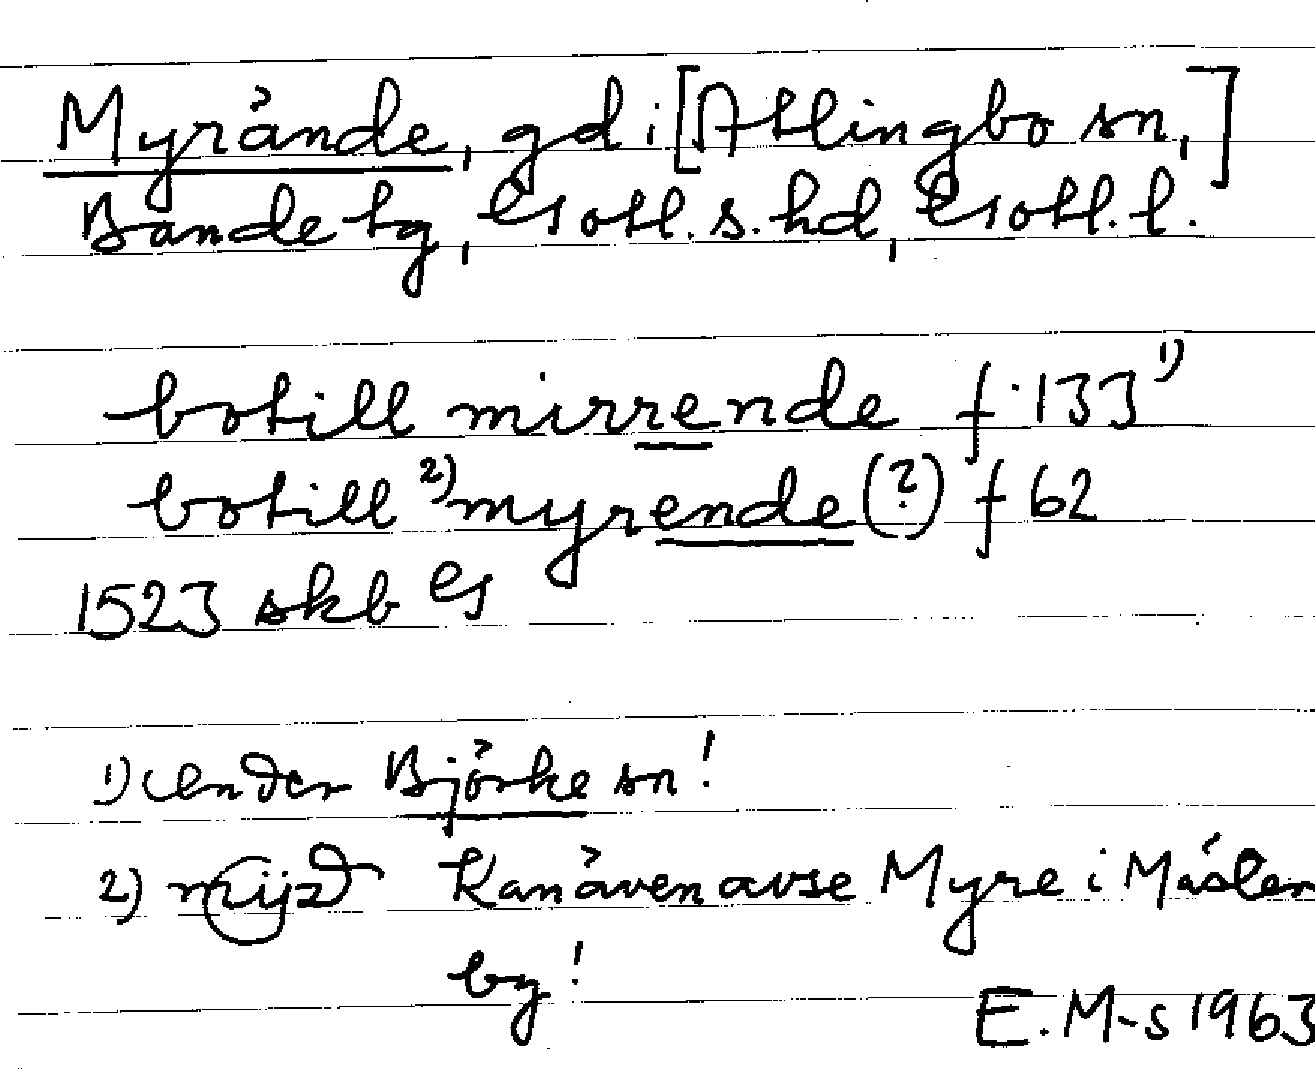 Myrände, gd i [Atlingbo sn,]
Bande tg, Gotl. s. hd, Gotl. l.
botill mirrende f. 133 1)
botill 2) myrende (?) f 62
1523 skb G
1) under Björke sn!
2) Kan även avse Myre i Mäster
by!
E. M-s 1963